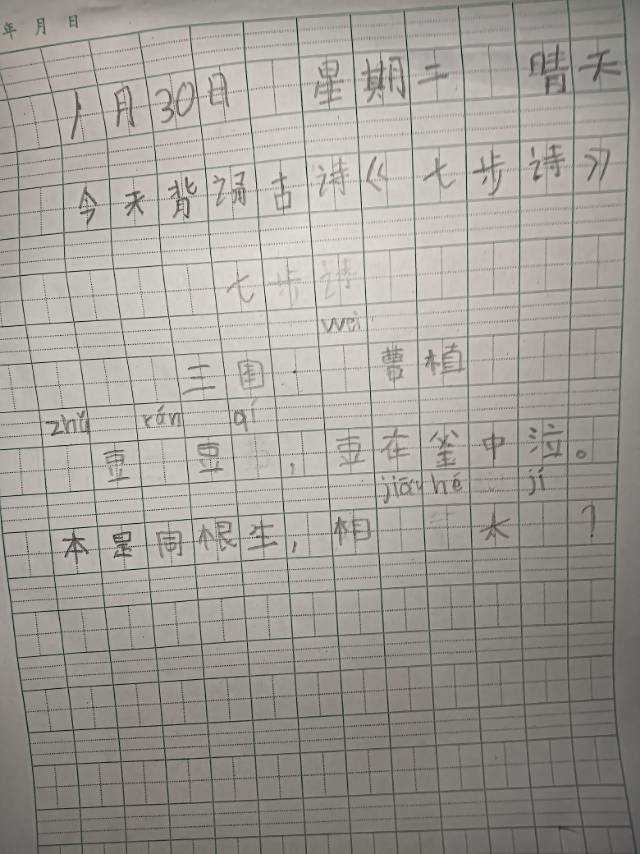 年 月 日
1月30日 星期二 晴天
今天背诵古诗《七步诗》
七步诗
wèi
三国· 曹植
zhǔ rán qí
豆 豆 ,豆在釜中泣。
jiān hé jí
本是同根生,相 太 ?